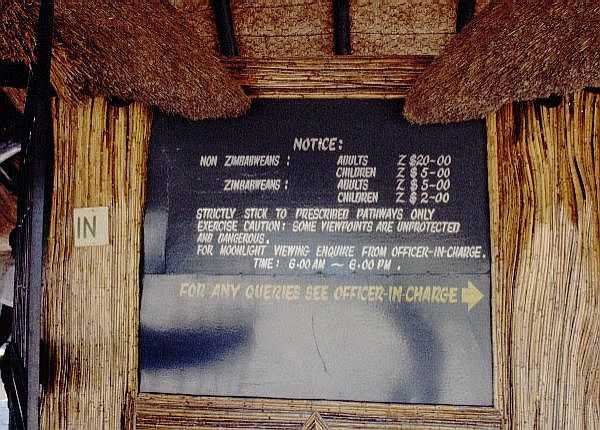 NOTICE:
NON ZIMBABWEANS : ADULTS Z $20-00
CHILDREN Z $ 5-00
ZIMBABWEANS : ADULTS Z $ 5-00
CHILDREN Z $ 2-00
STRICTLY STICK TO PRESCRIBED PATHWAYS ONLY
EXERCISE CAUTION: SOME VIEWPOINTS ARE UNPROTECTED
AND DANGEROUS.
FOR MOONLIGHT VIEWING ENQUIRE FROM OFFICER-IN-CHARGE.
TIME: 6.00 AM ~ 6.00 PM .
FOR ANY QUERIES SEE OFFICER-IN-CHARGE
IN